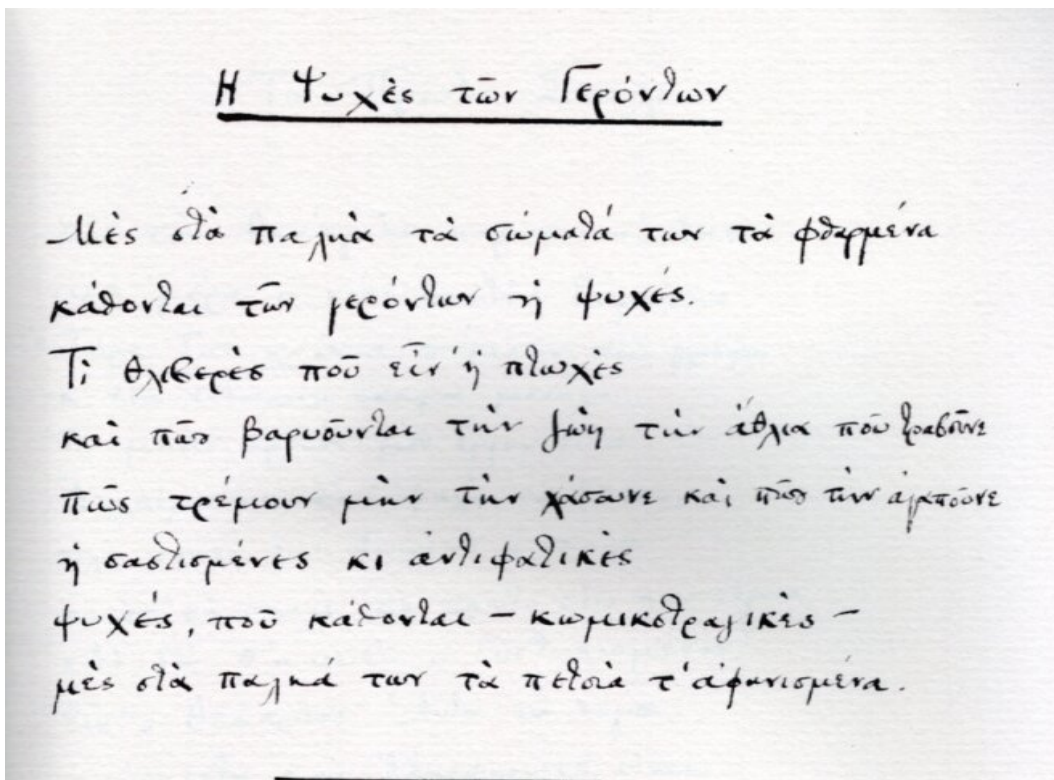 Η Ψυχὲς τῶν Γερόντων
Μὲς στὰ παληὰ τὰ σώματά των τὰ φθαρμένα
κάθονται τῶν γερόντων ἡ ψυχές.
Τί θλιβερὲς ποῦ εἶν' ἡ πτωχὲς
καὶ πῶς βαρυοῦνται τὴν ζωὴ τὴν ἄθλια ποῦ τραβοῦνε
πῶς τρέμουν μὴν τὴν χάσωνε καὶ πῶς τὴν ἀγαποῦνε
ἡ σαστισμένες κι ἀντιφατικὲς
ψυχές, ποῦ κάθονται – κωμικοτραγικὲς –
μὲς στὰ παληά των τὰ πετσιὰ τ' ἀφανισμένα.